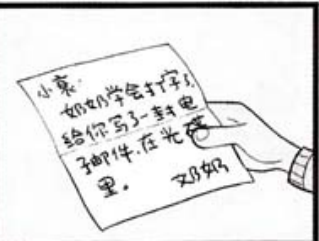 小裹：
奶奶学会打字了，
给你写了一封电
子邮件，在光盘
里。 奶奶